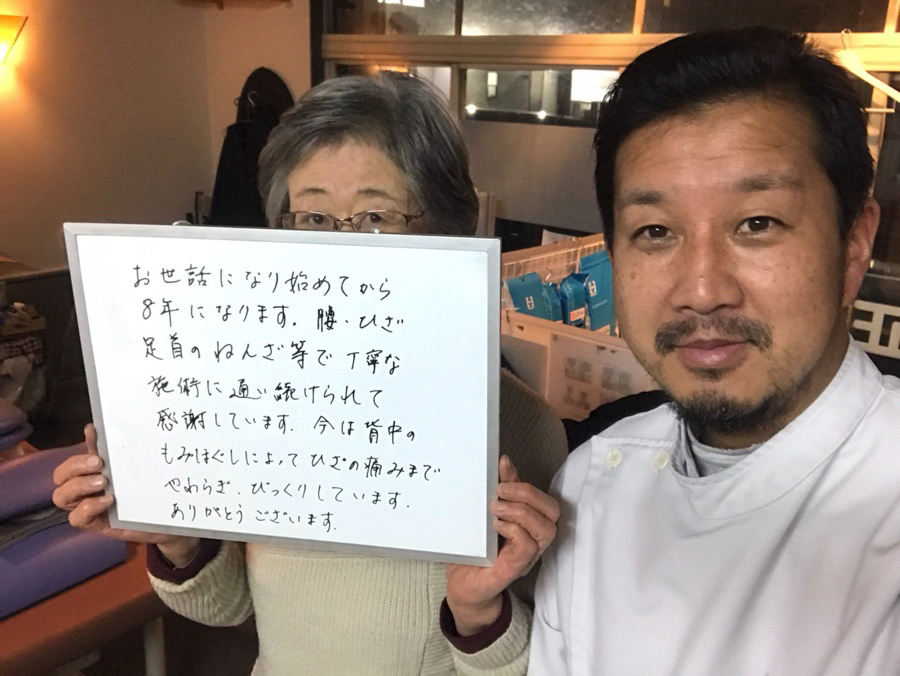 お世話になり始めてから
8年になります。腰・ひざ
足首のねんざ等で丁寧な
施術に通い続けられて
感謝しています。今は背中の
もみほぐしによってひざの痛みまで
やわらぎ、びっくりしています。
ありがとうございます。